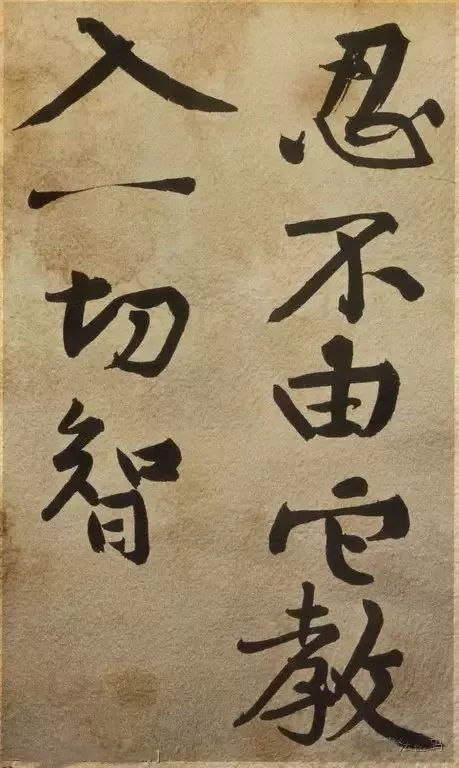 忍不由它教
入一切智